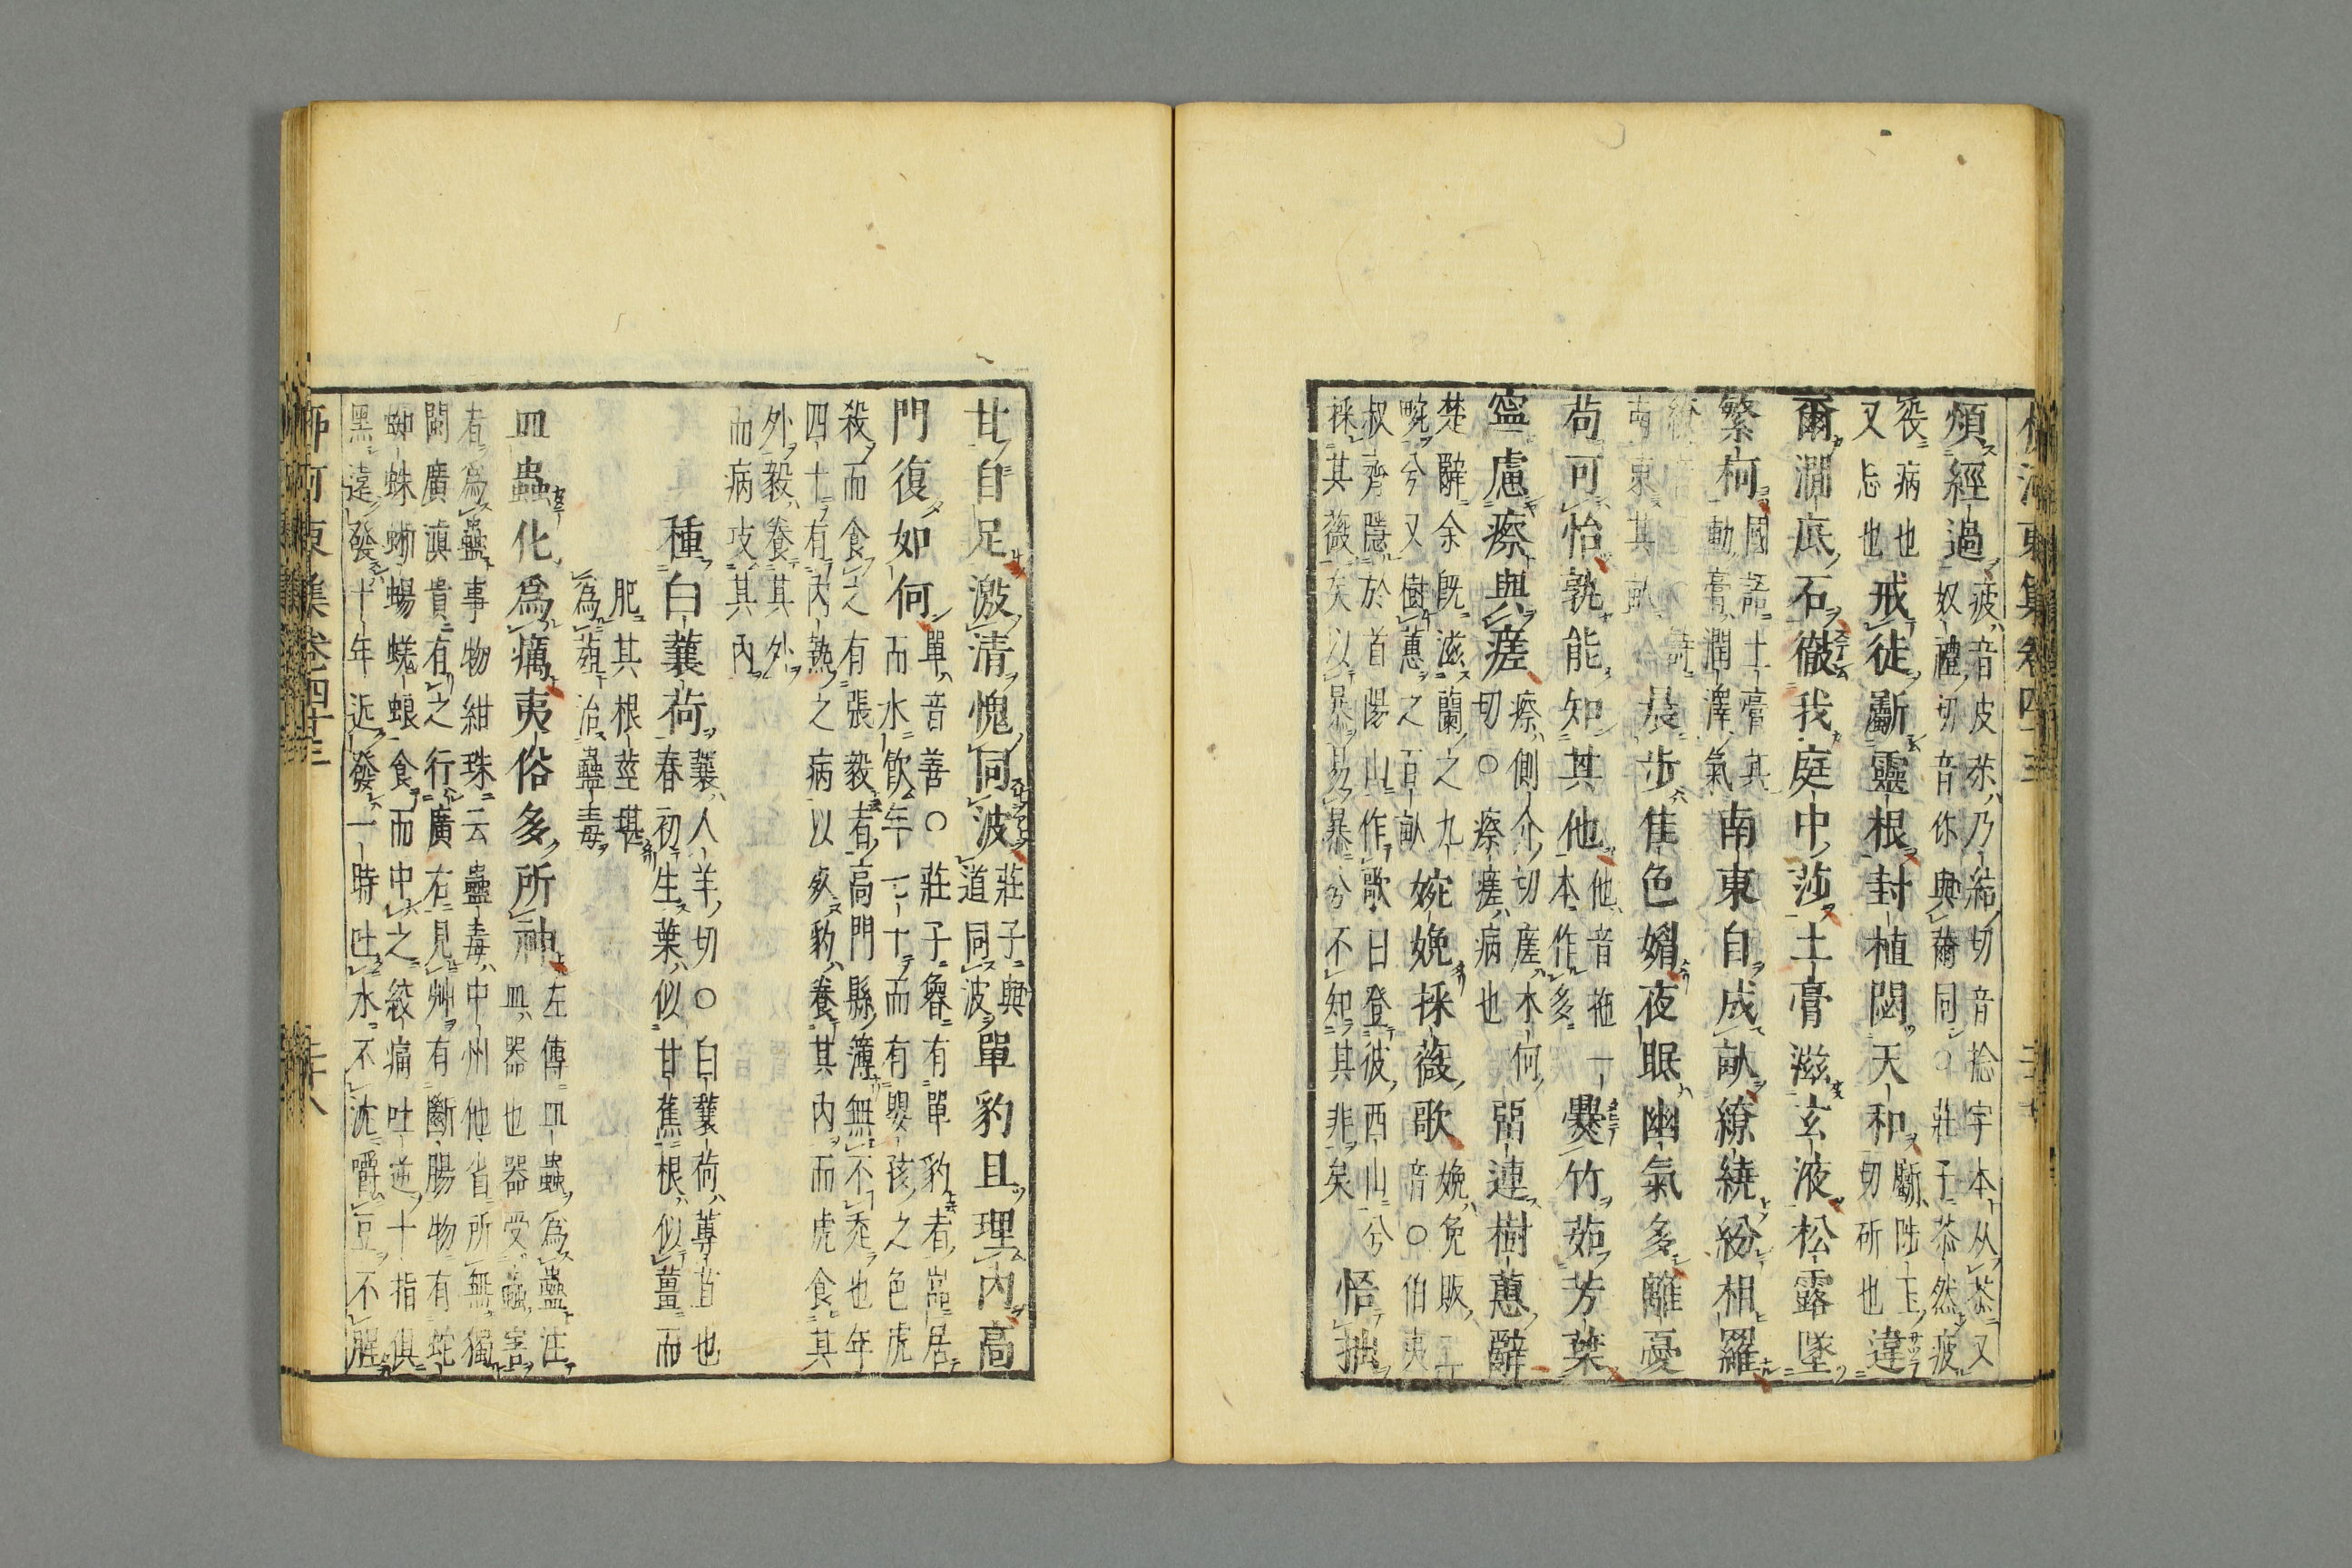 煩經過疲音皮苶乃結切音捻字本从苶又
奴禮切音伱與薾同○莊子苶然疲
役病也
又忘也
戒徒斸靈根封植閟天和斸陟玉
切斫也
違
爾澗底石徹我庭中莎土膏滋玄液松露墜
繁柯國語土膏其
動膏潤澤氣
南東自成畝繚繞紛相羅
南東其畝
晨步佳色媚夜眠幽氣多離憂
苟可怡孰能知其他他音拖一
本作多
爨竹茹芳葉
寧慮瘵與瘥瘵側介切瘥才何
切○瘵瘥病也
留連樹蕙辭
楚辭余既滋蘭之九
畹兮又樹蕙之百畝
婉娩採薇歌娩免販
音○伯夷
叔齊隱於首陽山作歌曰登彼西山兮
採其薇矣以暴易暴兮不知其非矣
悟拙
甘自足激清愧同波莊子與
道同波
單豹且理內高
門復如何單音善○莊子魯有單豹者嵓居
而水飲年七十而有嬰孩之色虎
殺而食之有張毅者高門縣簿無不走也年
四十有內熱之病以死豹養其內而虎食其
外毅養其外
而病攻其內
種白蘘荷蘘人羊切○白蘘荷蓴苴也
春初生葉似甘蕉根似薑而
肥其根莖堪
為葅治蠱毒
皿蟲化為癘夷俗多所神左傳皿蟲為蠱注
皿器也器受蟲害
者為蠱事物紺珠云蠱毒中州他省所無獨
閩廣滇貴有之行廣右見艸有斷腸物有蛇
蜘蛛蜥蜴蜣蜋食而中之絞痛吐逆十指俱
黑遠發十年近發一時吐水不沈嚼豆不腥
柳河東集卷四十三